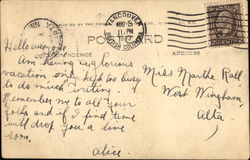 VANCOUVER
AUG 5
11 PM
BRITISH COLUMBIA
POST CARD
ADDRESS
Hello everyone
Am having a glorious
vacation only kept too busy
to do much writing.
Remember me to all your
folks and if I find time
will drop you a line
soon.
Alice.
Miss Martha Rall
West Wingham
Alta.